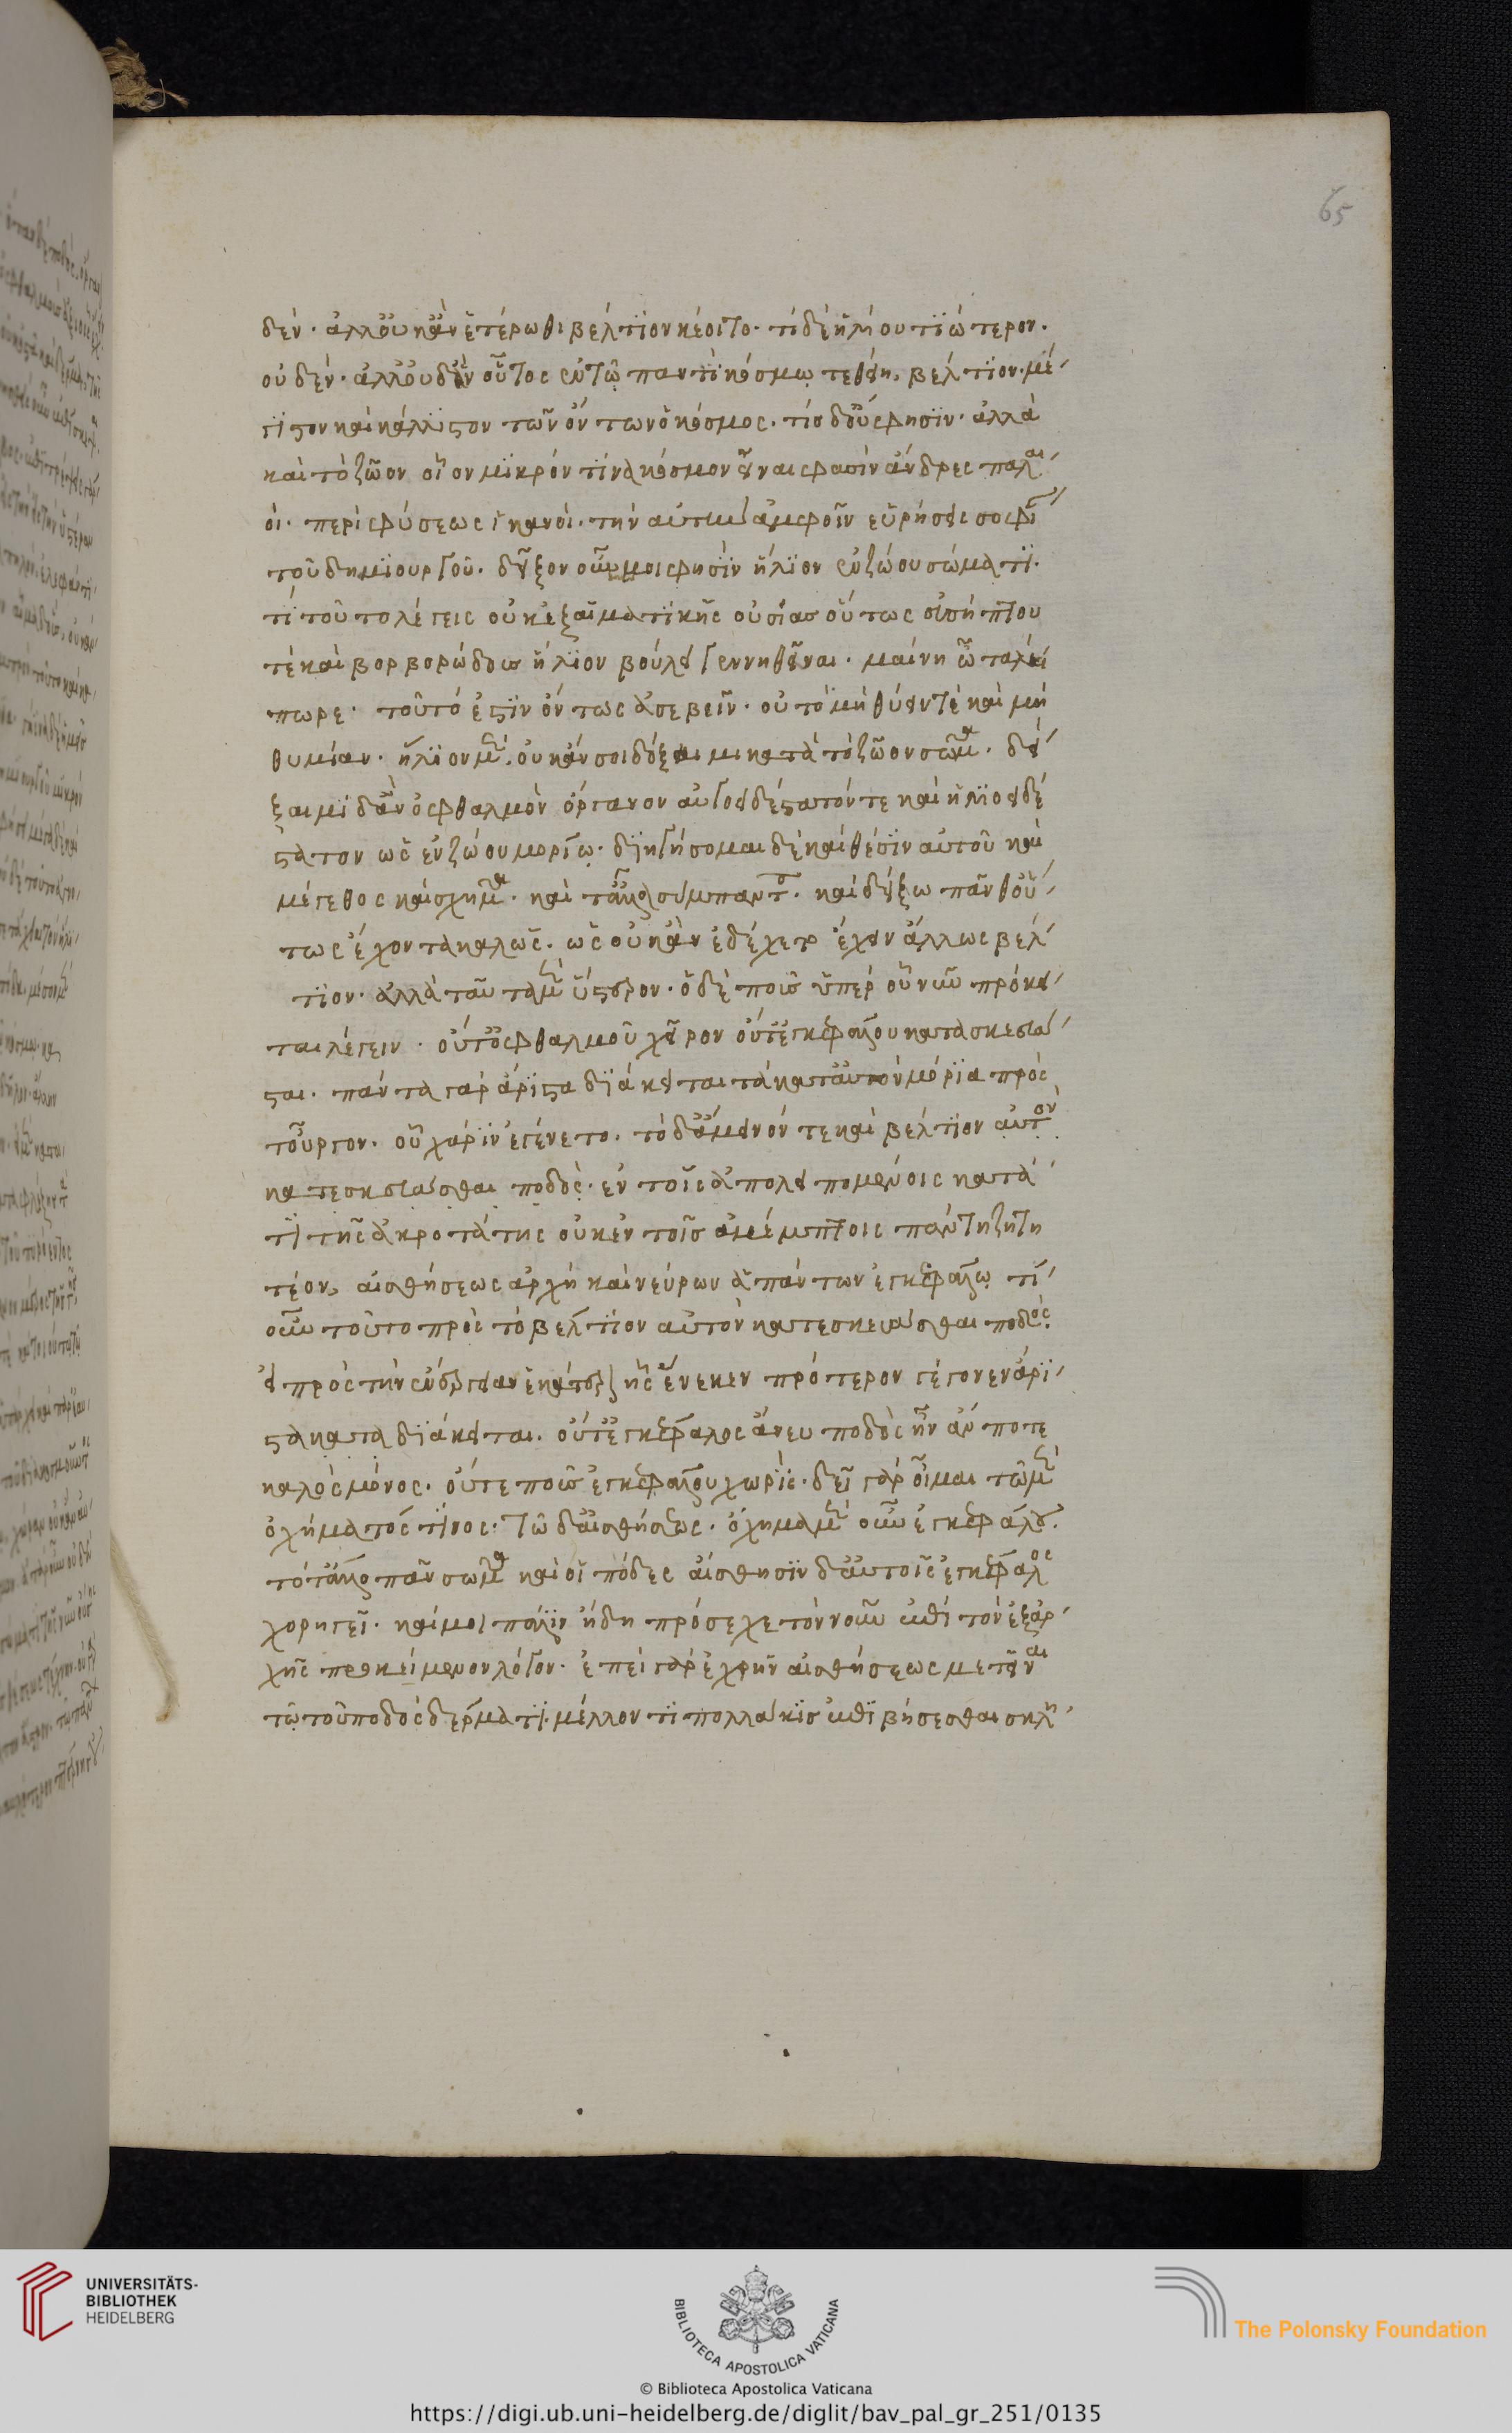 65
δέν· ἀλλ' οὐκ ἂν ἑτέρωθι βέλτϊον κέοιτο· τί δὲ ἡλίου τιμϊώτερον·
οὐδέν· ἀλλ' οὐδ' ἂν οὗτος ἐν τῷ παντὶ κόσμω τεθείη βέλτϊον· μέ
γϊστον καὶ κάλλιστον τῶν ὄντων ὁ κόσμος· τίς δ' οὔ φησϊν· ἀλλὰ
καὶ τὸ ζῶον οἷον μϊκρόν τινα κόσμον εἶναι φασὶν ἄνδρες παλαι
οὶ· περὶ φύσεως ἱκανοὶ· τὴν αὐτὴν ἀμφοῖν εὑρήσεις σοφί
τοῦ δημϊουργοῦ· δεῖξον οὖν μοι φησὶν ἥλϊον ἐν ζώου σώματϊ·
τί τοῦτο λέγεις οὐκ ἐξ αἱματϊκῆς οὐσίας οὕτως σηπτοῦ
τὲ καὶ βορβορώδους ἥλϊον βούλει γεννηθῆναι· μαίνη ὦ ταλαί
πωρε· τοῦτό ἐστϊν ὄντως ἀσεβεῖν· οὐ τὸ μὴ θύειν τὲ καὶ μὴ
θυμιᾶν· ἥλϊον μὲν οὐκ ἄν σοι δείξαιμι κατὰ τὸ ζῶον σῶμα· δεί
ξαιμι δ' ἂν ὀφθαλμὸν ὄργανον αὐγοειδέστατόν τε καὶ ἡλϊοειδέ
στατον ὡς ἐν ζώου μορίω· διηγήσομαι δὲ καὶ θέσϊν αὐτοῦ καὶ
μέγεθος καὶ σχῆμα· καὶ τἄλλα σύμπαντα· καὶ δείξω πάνθ' οὕ
τως ἔχοντα καλῶς· ὡς οὐκ ἂν ἐδέχετο ἔχειν ἄλλως βέλ
τϊον· ἀλλὰ ταῦτα μὲν ὕστερον· ὁ δὲ ποῦς ὑπὲρ οὗ νῦν πρόκει
ται λέγειν· οὔτ' ὀφθαλμοῦ χεῖρον οὔτ' ἐγκεφάλου κατασκεύα
σται· πάντα γὰρ ἄρϊστα διάκειται τὰ κατ' αὐτὸν μόρϊα πρὸς
τοὖργον· οὗ χάρϊν ἐγένετο· τὸ δ' ἄμεινόν τε καὶ βέλτϊον αὐτὸν
κατεσκευάσθαι ποδὸς· ἐν τοῖς ἀπολειπομένοις κατά
τϊ τῆς ἀκροτάτης οὐκ ἐν τοῖς ἀμέμπτοις πάντη ζητη
τέον· αἰσθήσεως ἀρχὴ καὶ νεύρων ἁπάντων ἐγκεφάλω τί
οὖν τοῦτο πρὸς τὸ βέλτϊον αὐτὸν κατεσκευάσθαι ποδὸς·
εἰ πρὸς τὴν ἐνέργειαν ἑκάτερος ἧς ἕνεκεν πρότερον γέγονεν ἄρϊ
στα κατὰ διάκειται· οὔτ' ἐγκέφαλος ἄνευ ποδὸς ἦν ἄν ποτε
καλὸς μόνος· οὔτε ποῦς ἐγκεφάλου χωρὶς· δεῖ γὰρ οἶμαι τῶ μὲν
ὀχήματός τϊνος· τῶ δ' αἰσθήσεως· ὄχημα μὲν οὖν ἐγκεφάλου·
τό τ' ἄλλο πᾶν σῶμα καὶ οἱ πόδες αἴσθησϊν δ' αὐτοῖς ἐγκέφαλος
χορηγεῖ· καί μοι πάλϊν ἤδη πρόσεχε τὸν νοῦν ἐπὶ τὸν ἐξ ἀρ
χῆς προκείμενον λόγον· ἐπεὶ γὰρ ἐχρῆν αἰσθήσεως μετεῖναι
τῶ τοῦ ποδὸς δέρματϊ· μέλλον τϊ πολλάκϊς ἐπϊβήσεσθαι σκλη
UNIVERSITÄTS-
BIBLIOTHEK
HEIDELBERG
BIBLIOTECA APOSTOLICA VATICANA
© Biblioteca Apostolica Vaticana
The Polonsky Foundation
https://digi.ub.uni-heidelberg.de/diglit/bav_pal_gr_251/0135